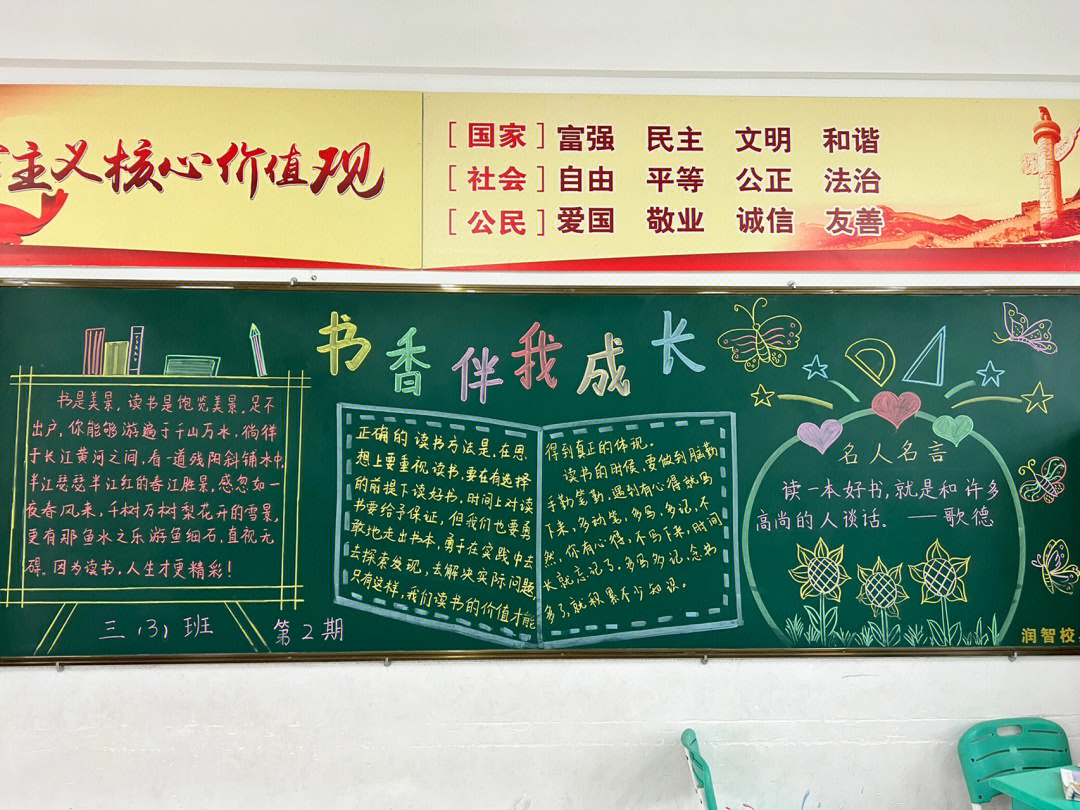 主义核心价值观
［国家］富强 民主 文明 和谐
［社会］自由 平等 公正 法治
［公民］爱国 敬业 诚信 友善
书香伴我成长
书是美景，读书是饱览美景，足不
出户，你能够游遍于千山万水，徜徉
于长江黄河之间，看一道残阳斜铺水中，
半江瑟瑟半江红的春江胜景，感忽如一
夜春风来，千树万树梨花开的雪景，
更有那鱼水之乐游鱼细石，直视无
碍。因为读书，人生才更精彩！
三（3）班 第2期
正确的读书方法是，在思
想上要重视读书，要在有选择
的前提下读好书，时间上对读
书要给予保证，但我们也要勇
敢地走出书本，勇于在实践中去
去探索发现，去解决实际问题，
只有这样，我们读书的价值才能
得到真正的体现。
读书的时候，要做到脑勤
手勤笔勤，遇到有心得就写
下来，多动笔，多写，多记，不
然，你有心得，不写下来，时间
长就忘记了，多写多记，念书
多了，就积累不少知识。
名人名言
读一本好书，就是和许多
高尚的人谈话。——歌德
润智校